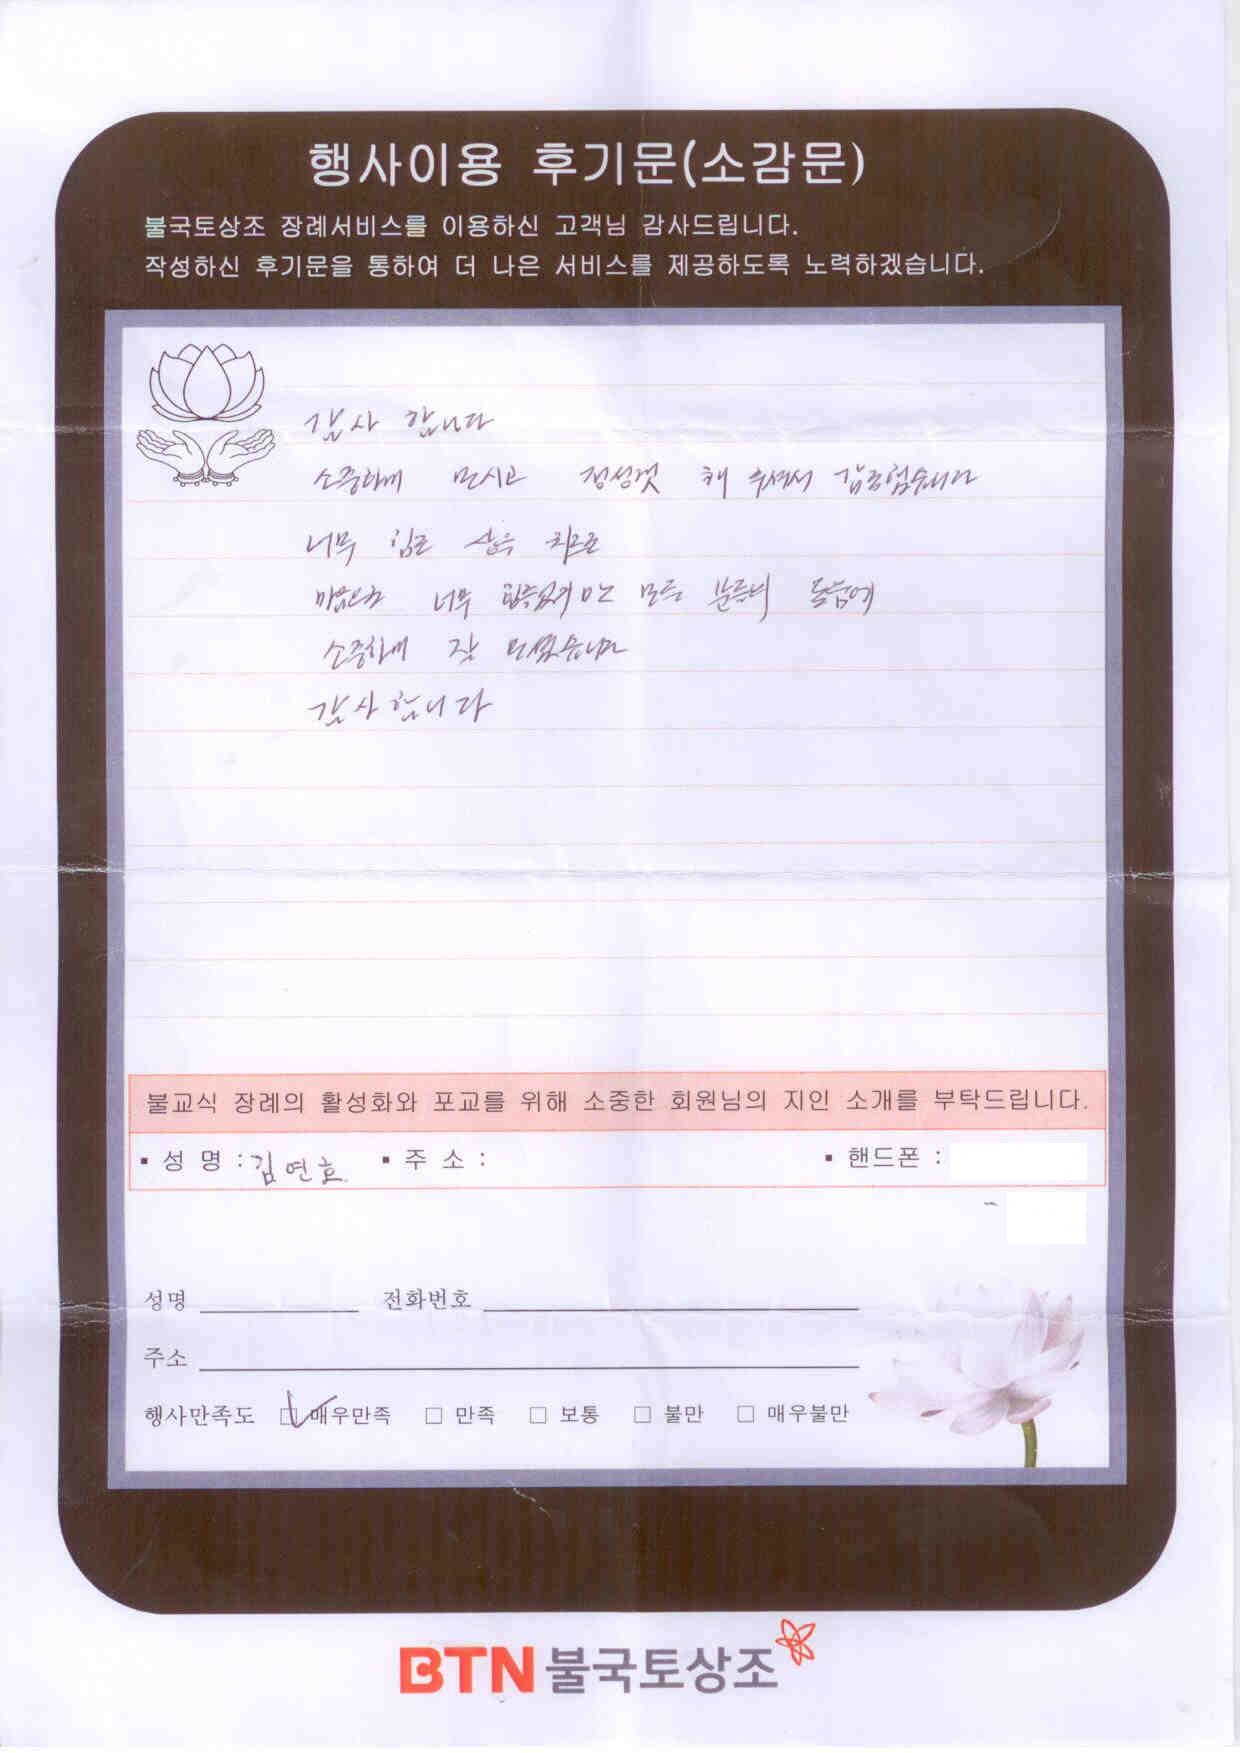 행사이용 후기문(소감문)
불국토상조 장례서비스를 이용하신 고객님 감사드립니다.
작성하신 후기문을 통하여 더 나은 서비스를 제공하도록 노력하겠습니다.
감사 합니다
소중하게 모시고 정성껏 해 주셔서
너무
너무 모든 분들의 도움에
소중하게 잘 모셨습니다
감사합니다
불교식 장례의 활성화와 포교를 위해 소중한 회원님의 지인 소개를 부탁드립니다.
▪ 성 명 : 김연호 ▪ 주 소 : ▪ 핸드폰 :
성명 전화번호
주소
행사만족도 □ 매우만족 □ 만족 □ 보통 □ 불만 □ 매우불만
BTN 불국토상조